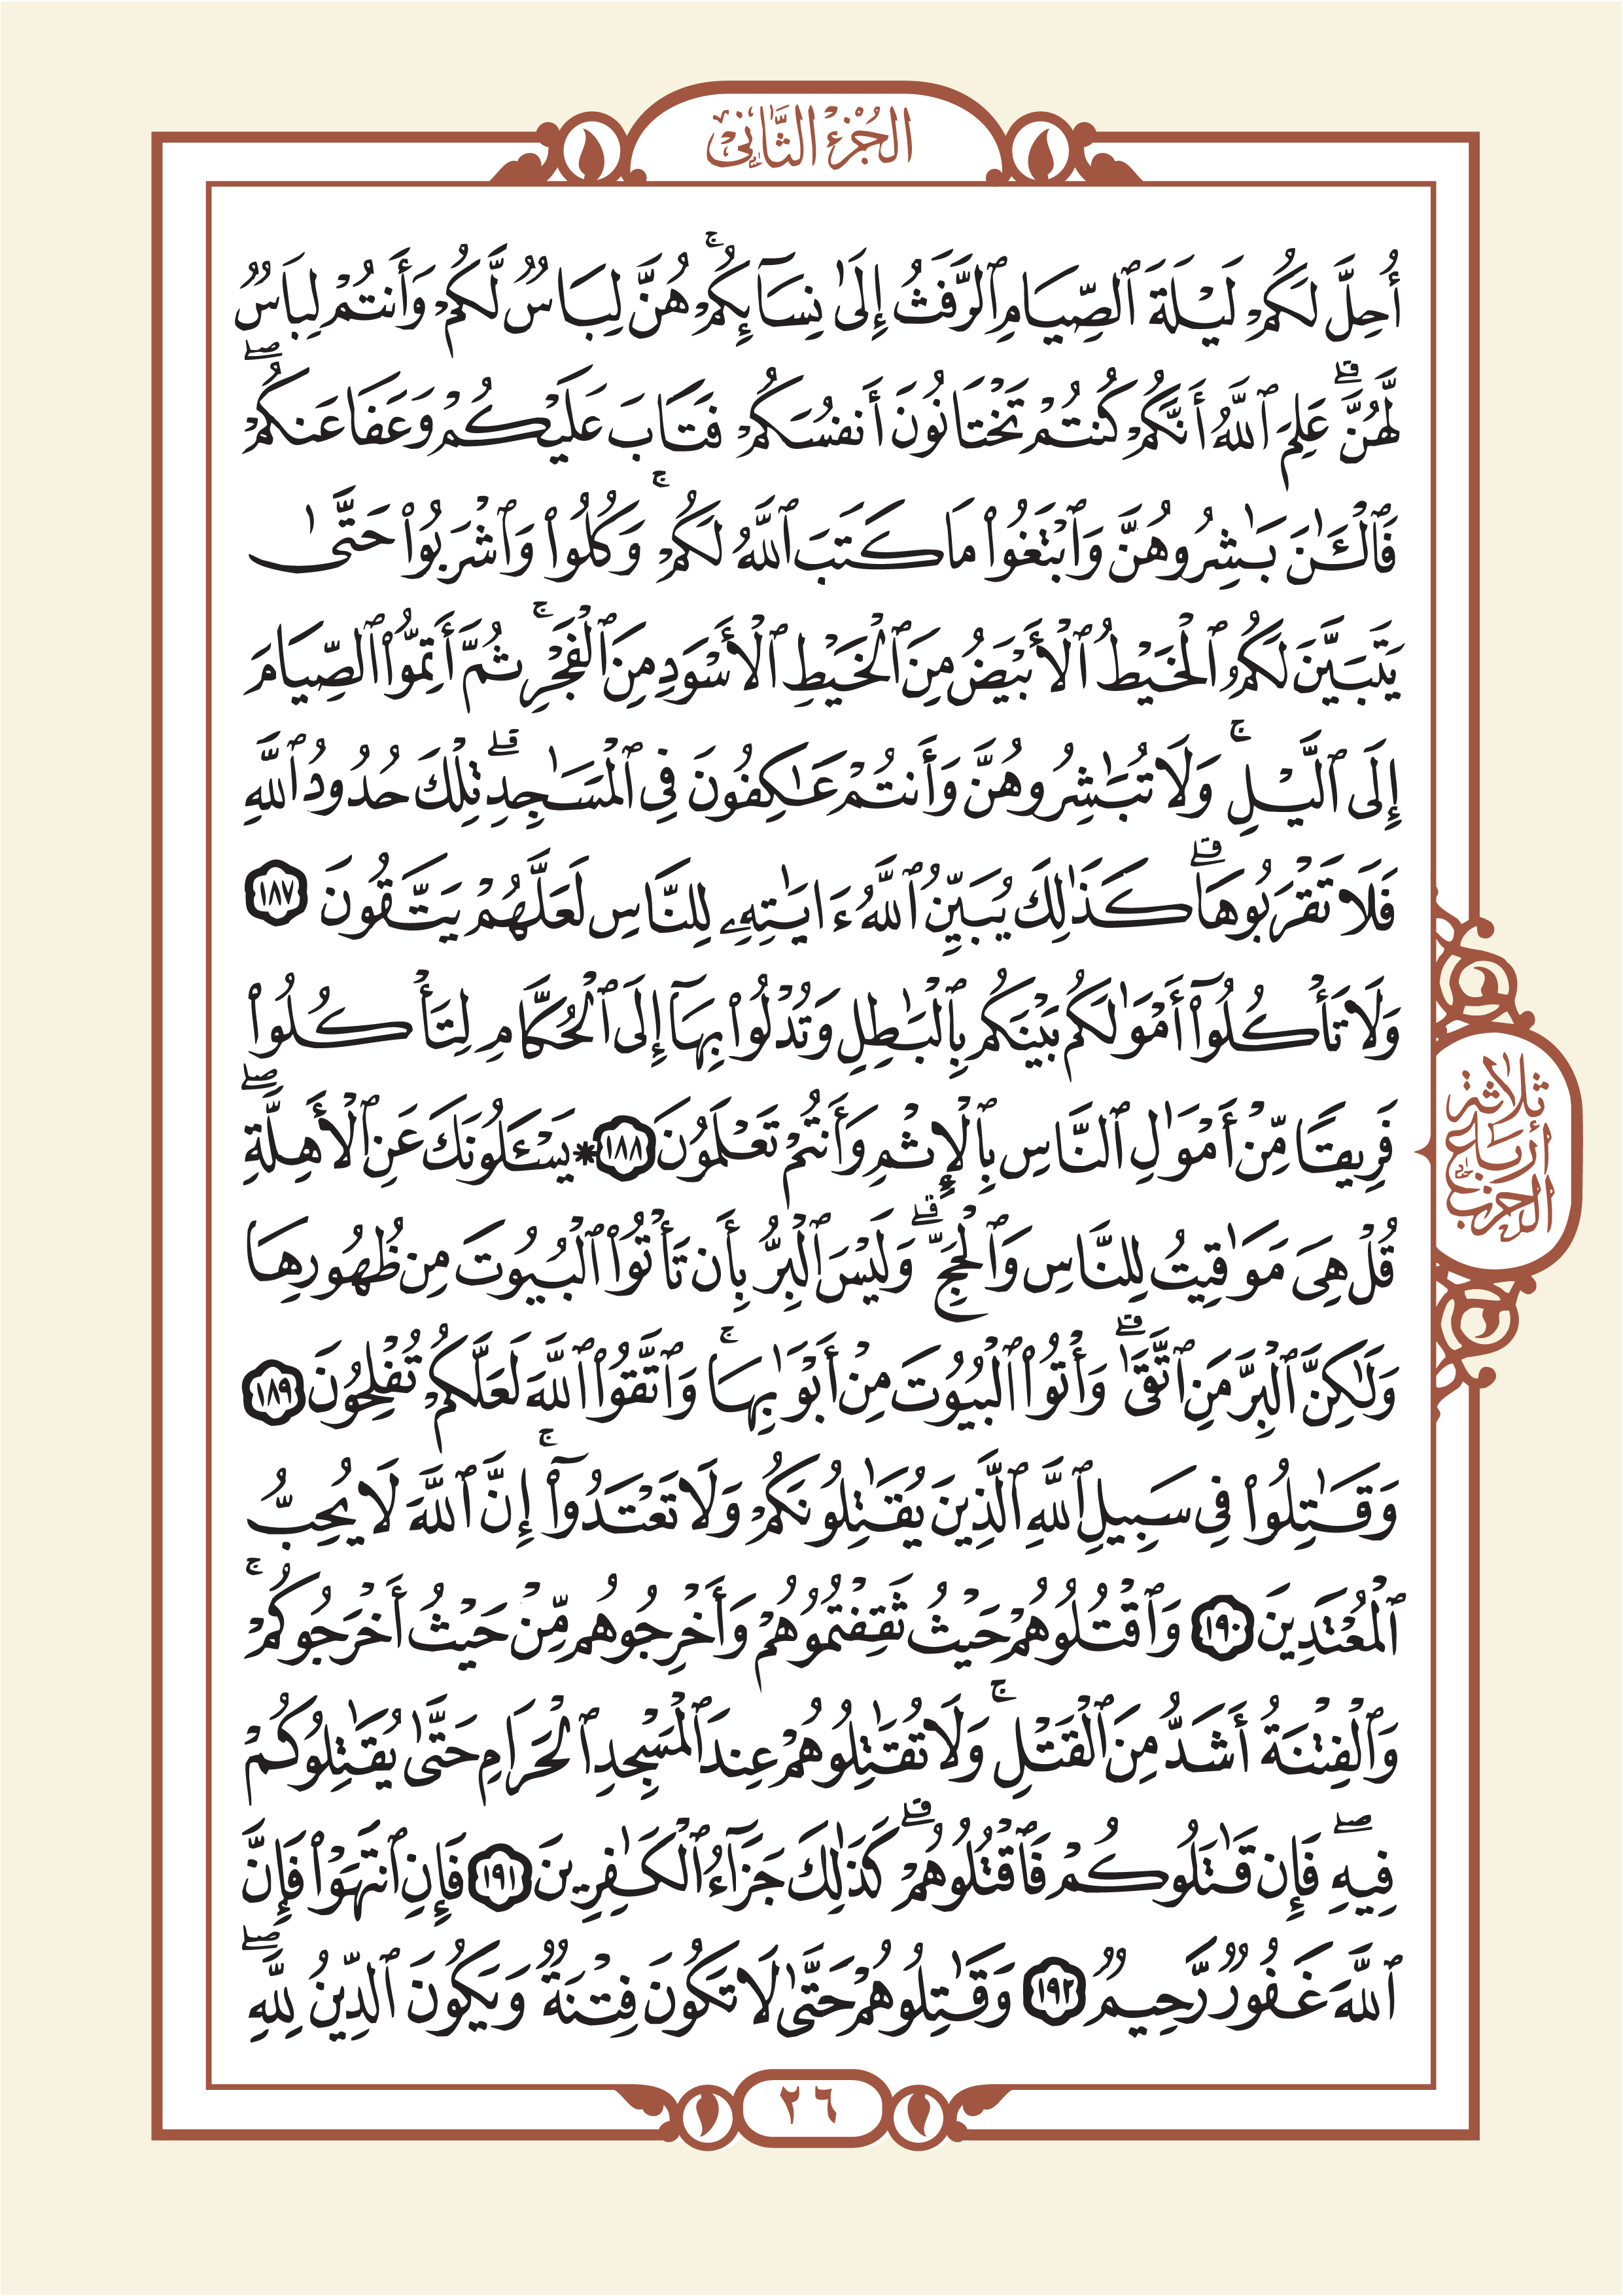 الجُزْءُ الثَّانِي
أُحِلَّ لَكُمْ لَيْلَةَ ٱلصِّيَامِ ٱلرَّفَثُ إِلَىٰ نِسَآئِكُمْۚ هُنَّ لِبَاسٌ لَّكُمْ وَأَنتُمْ لِبَاسٌ
لَّهُنَّۗ عَلِمَ ٱللَّهُ أَنَّكُمْ كُنتُمْ تَخْتَانُونَ أَنفُسَكُمْ فَتَابَ عَلَيْكُمْ وَعَفَا عَنكُمْۖ
فَٱلْـَٰٔنَ بَـٰشِرُوهُنَّ وَٱبْتَغُوا۟ مَا كَتَبَ ٱللَّهُ لَكُمْۚ وَكُلُوا۟ وَٱشْرَبُوا۟ حَتَّىٰ
يَتَبَيَّنَ لَكُمُ ٱلْخَيْطُ ٱلْأَبْيَضُ مِنَ ٱلْخَيْطِ ٱلْأَسْوَدِ مِنَ ٱلْفَجْرِۚ ثُمَّ أَتِمُّوا۟ ٱلصِّيَامَ
إِلَى ٱلَّيْلِۚ وَلَا تُبَـٰشِرُوهُنَّ وَأَنتُمْ عَـٰكِفُونَ فِى ٱلْمَسَـٰجِدِۗ تِلْكَ حُدُودُ ٱللَّهِ
فَلَا تَقْرَبُوهَاۗ كَذَٰلِكَ يُبَيِّنُ ٱللَّهُ ءَايَـٰتِهِۦ لِلنَّاسِ لَعَلَّهُمْ يَتَّقُونَ ١٨٧
وَلَا تَأْكُلُوٓا۟ أَمْوَٰلَكُم بَيْنَكُم بِٱلْبَـٰطِلِ وَتُدْلُوا۟ بِهَآ إِلَى ٱلْحُكَّامِ لِتَأْكُلُوا۟
فَرِيقًا مِّنْ أَمْوَٰلِ ٱلنَّاسِ بِٱلْإِثْمِ وَأَنتُمْ تَعْلَمُونَ ١٨٨ * يَسْـَٔلُونَكَ عَنِ ٱلْأَهِلَّةِۖ
قُلْ هِىَ مَوَٰقِيتُ لِلنَّاسِ وَٱلْحَجِّۗ وَلَيْسَ ٱلْبِرُّ بِأَن تَأْتُوا۟ ٱلْبُيُوتَ مِن ظُهُورِهَا
وَلَـٰكِنَّ ٱلْبِرَّ مَنِ ٱتَّقَىٰۗ وَأْتُوا۟ ٱلْبُيُوتَ مِنْ أَبْوَٰبِهَاۚ وَٱتَّقُوا۟ ٱللَّهَ لَعَلَّكُمْ تُفْلِحُونَ ١٨٩
وَقَـٰتِلُوا۟ فِى سَبِيلِ ٱللَّهِ ٱلَّذِينَ يُقَـٰتِلُونَكُمْ وَلَا تَعْتَدُوٓا۟ۚ إِنَّ ٱللَّهَ لَا يُحِبُّ
ٱلْمُعْتَدِينَ ١٩٠ وَٱقْتُلُوهُمْ حَيْثُ ثَقِفْتُمُوهُمْ وَأَخْرِجُوهُم مِّنْ حَيْثُ أَخْرَجُوكُمْۚ
وَٱلْفِتْنَةُ أَشَدُّ مِنَ ٱلْقَتْلِۚ وَلَا تُقَـٰتِلُوهُمْ عِندَ ٱلْمَسْجِدِ ٱلْحَرَامِ حَتَّىٰ يُقَـٰتِلُوكُمْ
فِيهِۖ فَإِن قَـٰتَلُوكُمْ فَٱقْتُلُوهُمْۗ كَذَٰلِكَ جَزَآءُ ٱلْكَـٰفِرِينَ ١٩١ فَإِنِ ٱنتَهَوْا۟ فَإِنَّ
ٱللَّهَ غَفُورٌ رَّحِيمٌ ١٩٢ وَقَـٰتِلُوهُمْ حَتَّىٰ لَا تَكُونَ فِتْنَةٌ وَيَكُونَ ٱلدِّينُ لِلَّهِۖ
ثلاثة
أرباع
الحزب
٢٦